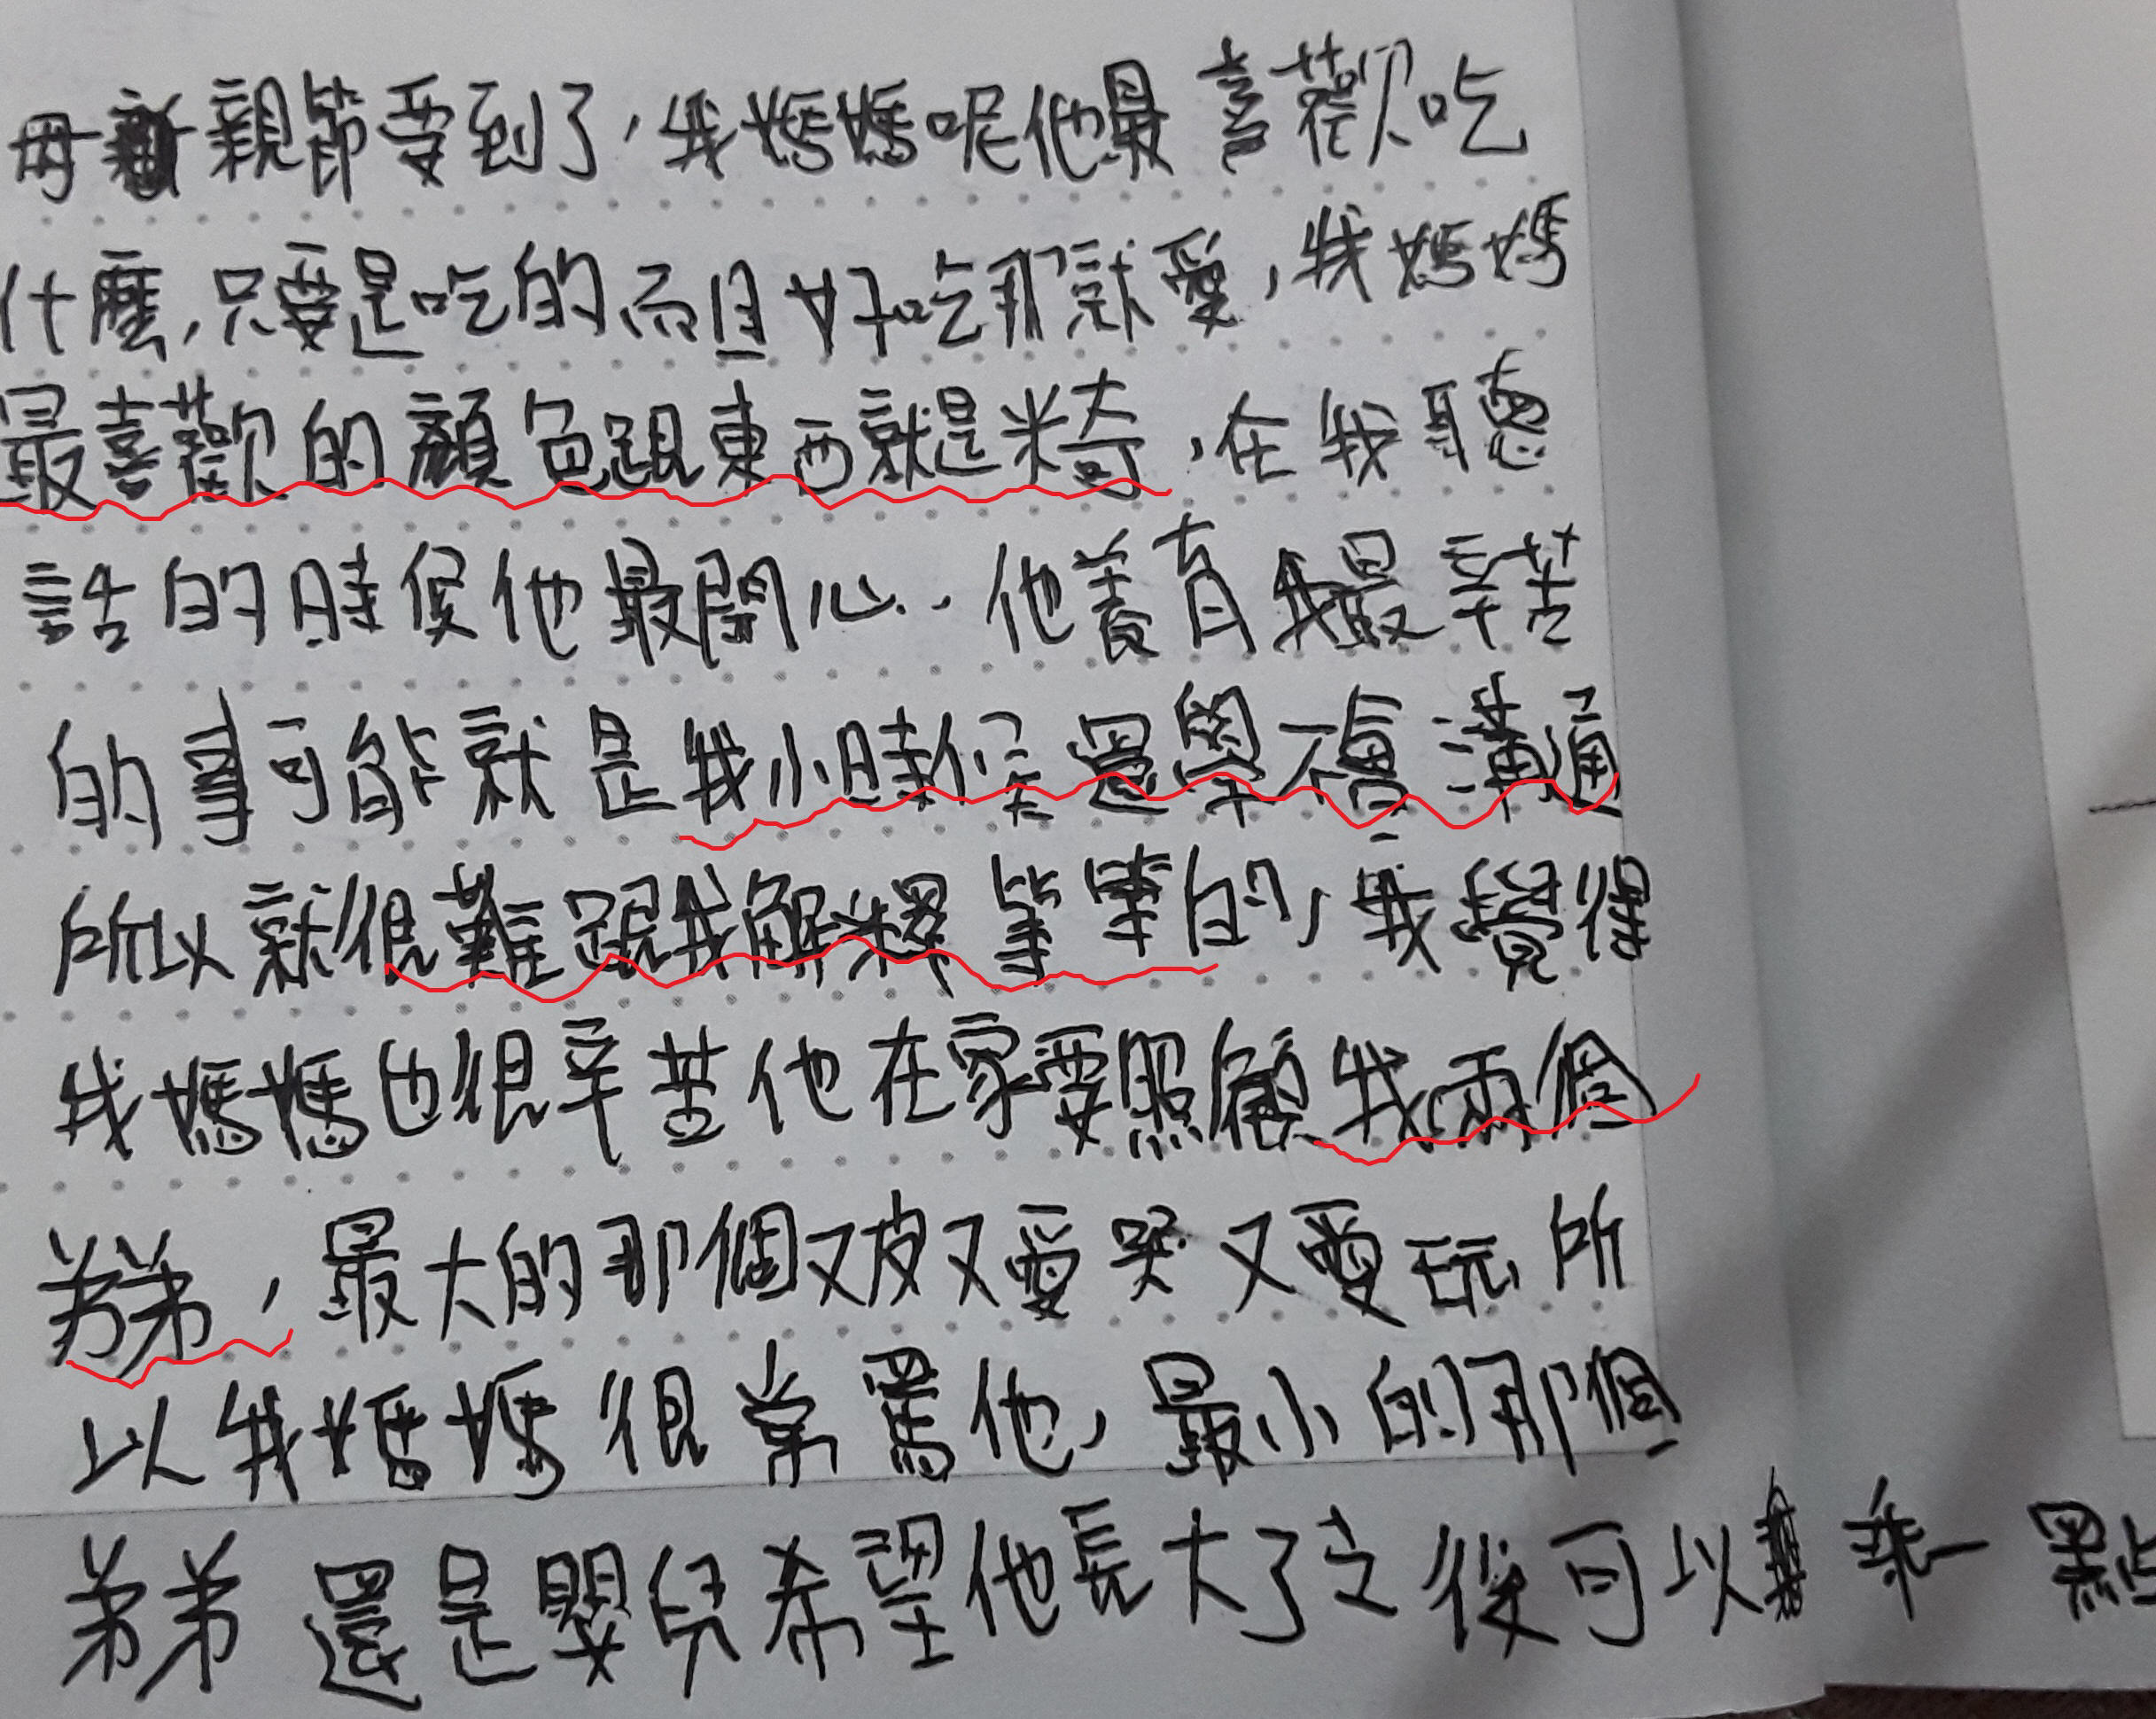 母親節要到了，我媽媽呢他最喜歡吃
什麼，只要是吃的而且好吃那就愛，我媽媽
最喜歡的顏色跟東西就是，在我聽
話的時侯他最開心..他養育我最辛苦
的事可能就是我小時候還學不會溝通
所以就很難跟我解釋等等的，我覺得
我媽媽也很辛苦他在家要照顧我兩個
弟弟，最大的那個又皮又愛哭又愛玩所
以我媽媽很常罵他，最小的那個
弟弟還是嬰兒希望他長大了之後可以乖一點